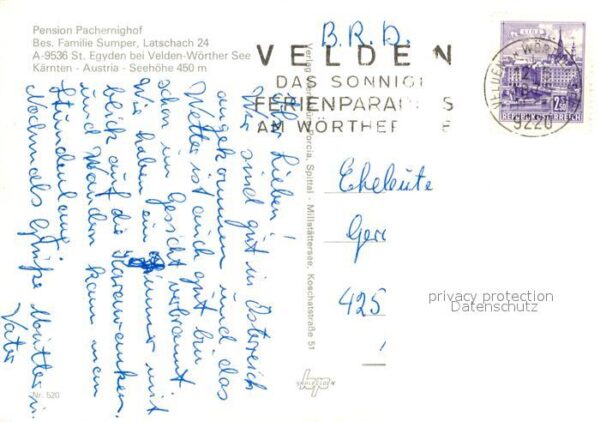 Pension Pachernighof
Bes. Familie Sumper, Latschach 24
A-9536 St. Egyden bei Velden-Wörther See
Kärnten - Austria - Seehöhe 450 m
Ihr Lieben!
Wir sind gut in Österreich
angekommen und das
Wetter ist auch gut bin
schon im Gesicht verbrannt
Wir haben ein Zimmer mit
blick auf die Karawanken.
und Wandern kann man
Stundenlang
Nochmals Grüße Mutter u.
Vater
Nr. 520
Verlag Spittal - Millstättersee, Koschatstraße 51
B.R.D.
VELDEN
DAS SONNIGE
FERIENPARADIES
AM WÖRTHER
VELDEN
9220
2S
REPUBLIK ÖSTERREICH
Eheleute
Ger
425
privacy protection
Datenschutz